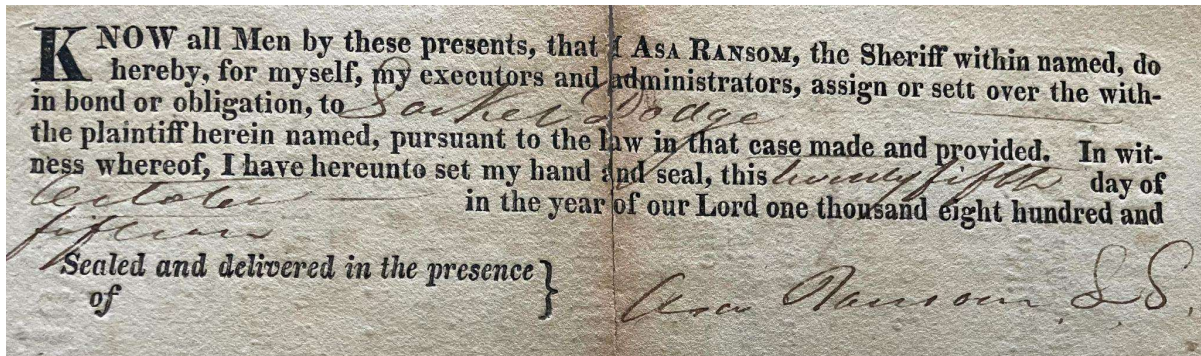 KNOW all Men by these presents, that I ASA RANSOM, the Sheriff within named, do
hereby, for myself, my executors and administrators, assign or sett over the with-
in bond or obligation, to Dodge
the plaintiff herein named, pursuant to the law in that case made and provided. In wit-
ness whereof, I have hereunto set my hand and seal, this twenty fifth day of
October in the year of our Lord one thousand eight hundred and
fifteen
Sealed and delivered in the presence }
of
Asa Ransom, L.S.